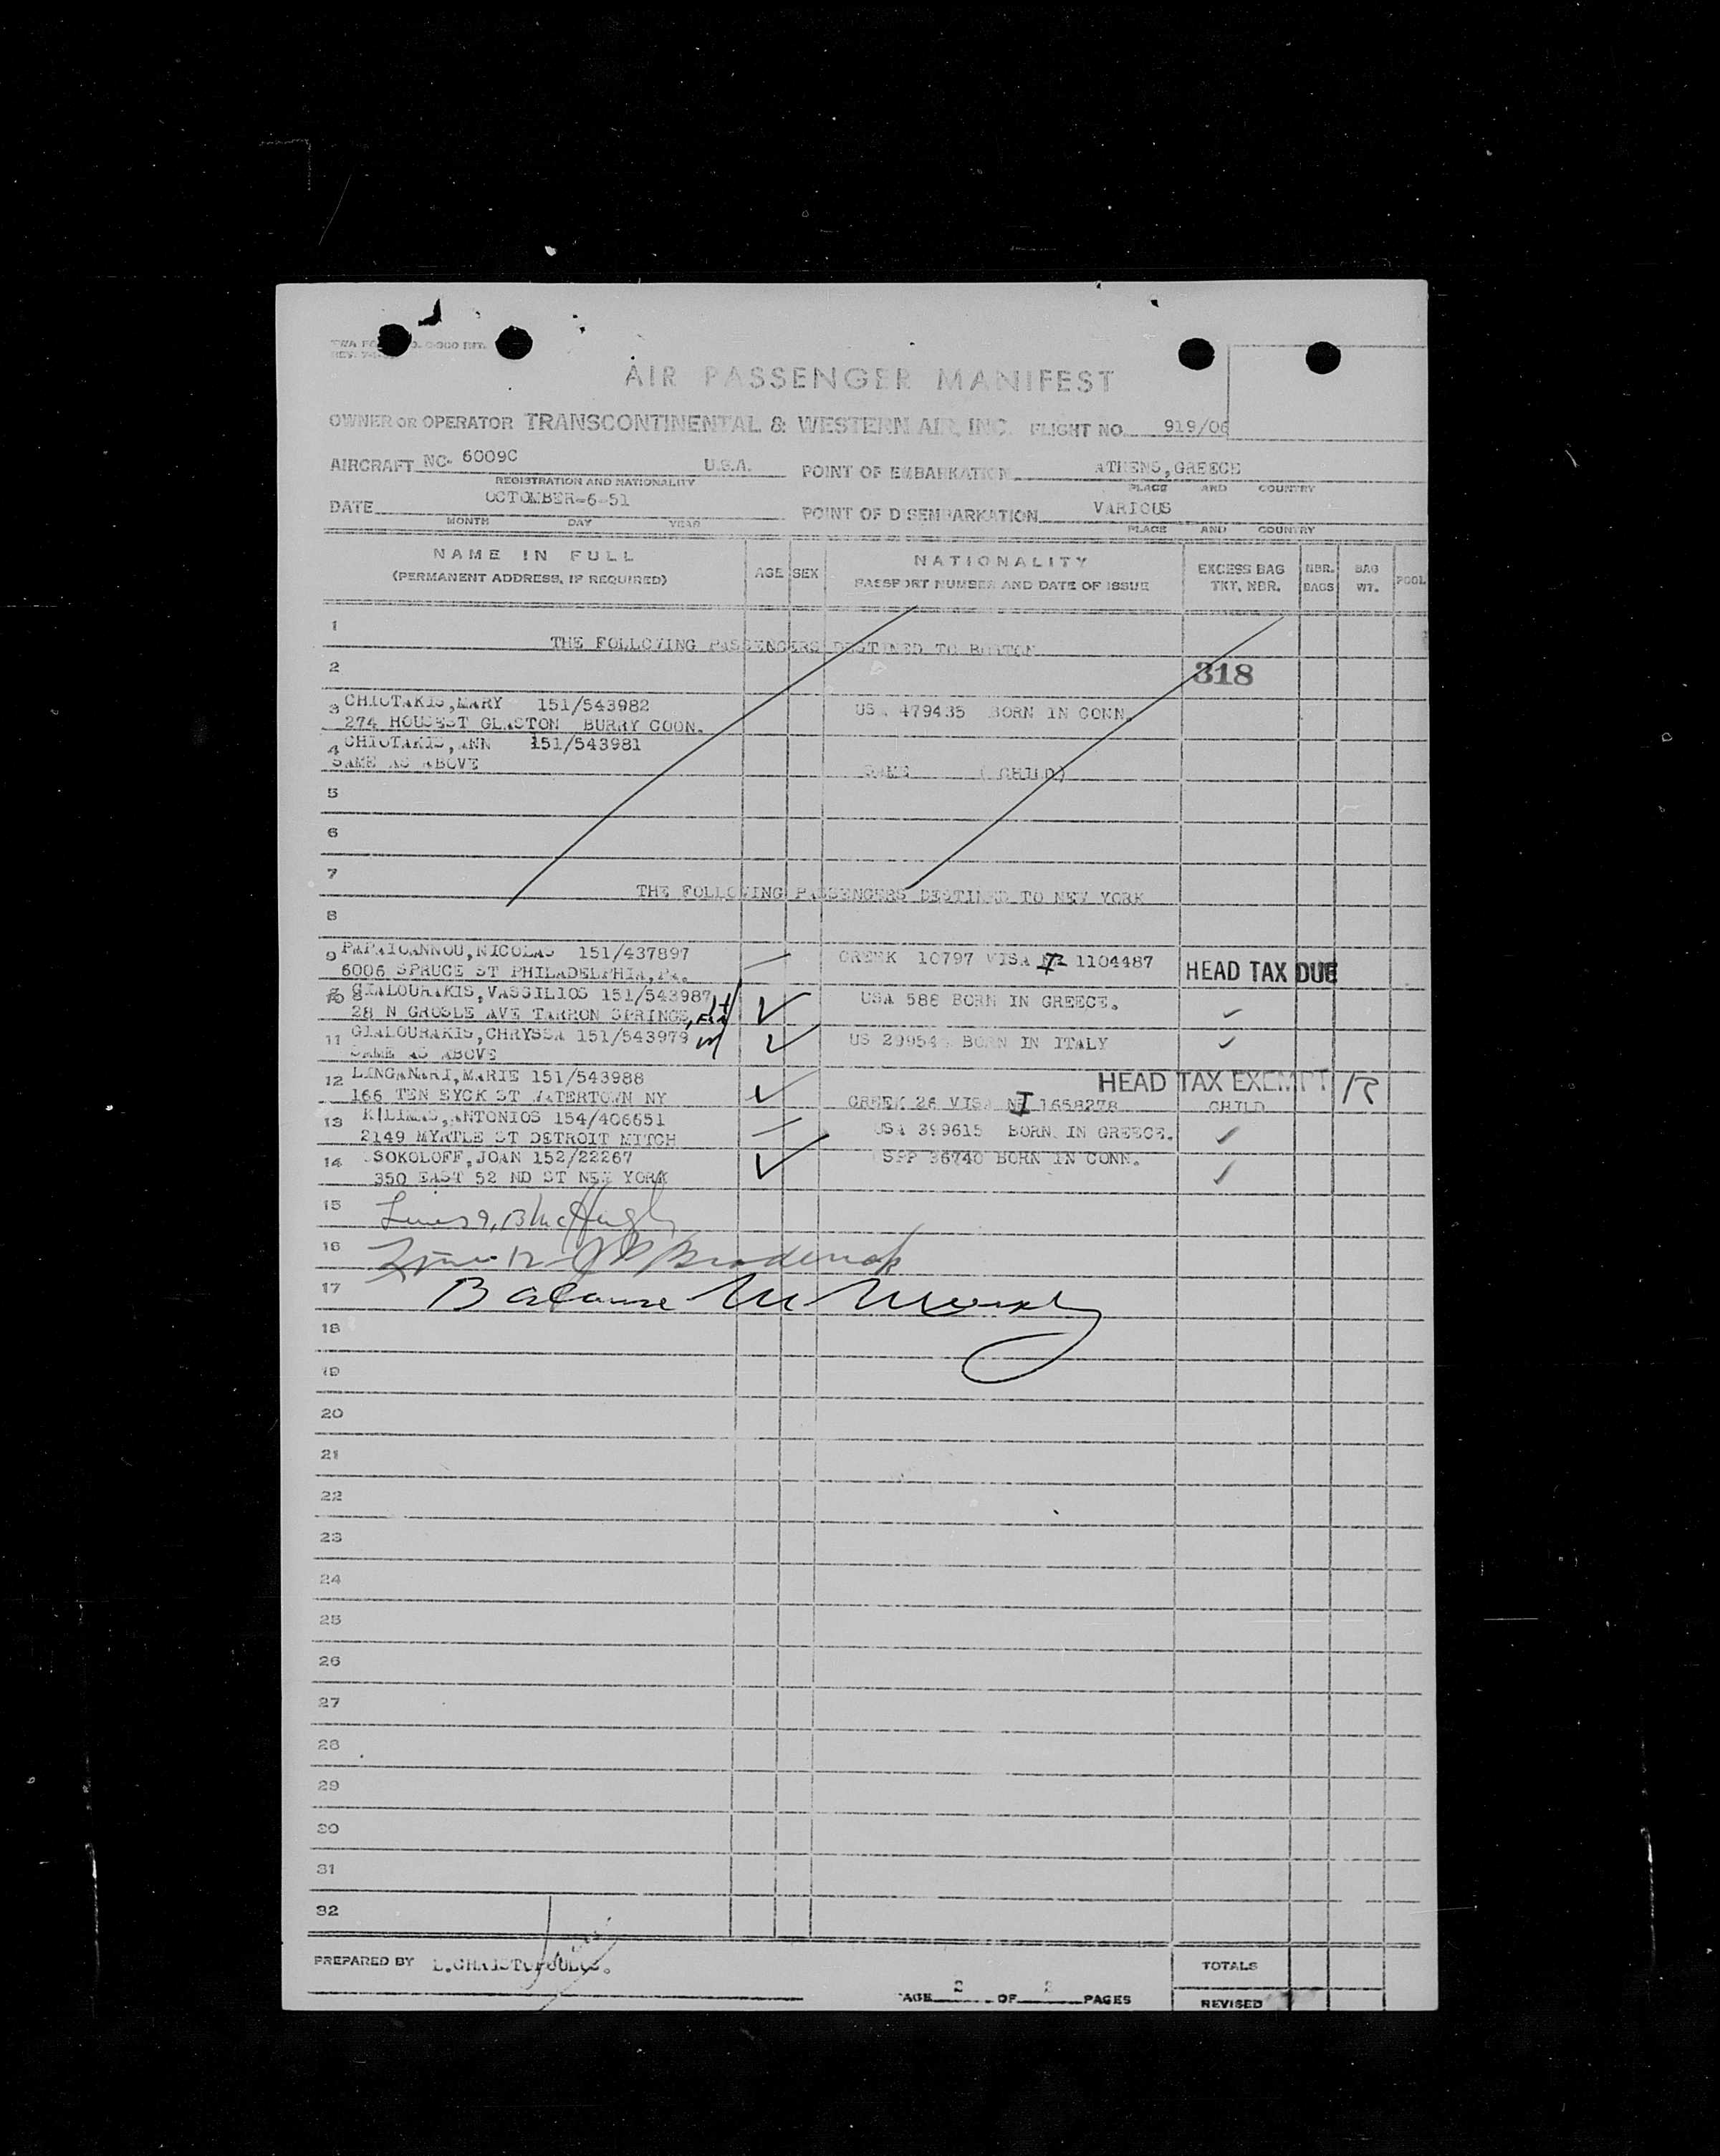 AIR PASSENGER MANIFEST
OWNER OR OPERATOR TRANSCONTINENTAL & WESTERN AIR, INC. FLIGHT NO. 919/06
AIRCRAFT NO. 6009C U.S.A. POINT OF EMBARKATION ATHENS, GREECE
REGISTRATION AND NATIONALITY PLACE AND COUNTRY
DATE OCTOMBER-6-51 POINT OF DISEMBARKATION VARIOUS
MONTH DAY YEAR PLACE AND COUNTRY
NAME IN FULL
(PERMANENT ADDRESS, IF REQUIRED)
AGE SEX
NATIONALITY
PASSPORT NUMBER AND DATE OF ISSUE
EXCESS BAG
TKT. NBR.
NBR.
BAGS
BAG
WT.
POOL
1
THE FOLLOWING PASSENGERS DESTINED TO BOSTON
2 318
3 CHIOTAKIS,MARY 151/543982 US 479435 BORN IN CONN.
274 HOUSEST GLASTON BURRY COON.
4 CHIOTAKIS,ANN 151/543981
SAME AS ABOVE SAME (CHILD)
5
6
7
THE FOLLOWING PASSENGERS DESTINED TO NEW YORK
8
9 PAPAIOANNOU,NICOLAS 151/437897 GREEK 10797 VISA 1104487
6006 SPRUCE ST PHILADELPHIA,PA. HEAD TAX DUE
10 GIALOURAKIS,VASSILIOS 151/543987 USA 586 BORN IN GREECE.
28 N GROSLE AVE TARRON SPRINGS,
11 GIALOURAKIS,CHRYSSA 151/543979 US 29954 BORN IN ITALY
SAME AS ABOVE
12 LINGANARI,MARIE 151/543988 HEAD TAX EXEMPT R
166 TEN EYCK ST WATERTOWN NY GREEK 26 VISA NR I 1658278 CHILD
13 KILIMAS,ANTONIOS 154/406651 USA 399615 BORN IN GREECE.
2149 MYRTLE ST DETROIT MITCH
14 SOKOLOFF,JOAN 152/22267 USPP 36740 BORN IN CONN.
350 EAST 52 ND ST NEW YORK
15
16
17 Balance M Murphy
18
19
20
21
22
23
24
25
26
27
28
29
30
31
32
PREPARED BY L.CHRISTOPOULOS. TOTALS
PAGE 2 OF 2 PAGES REVISED